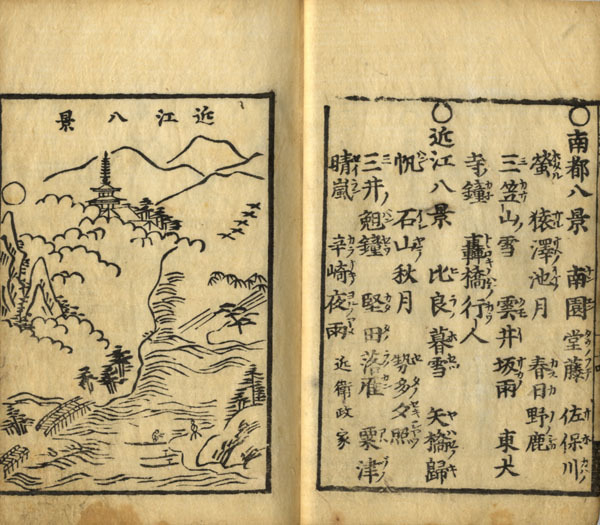 ○南都八景 南園堂藤 佐保川
螢 猿澤池月 春日野鹿
三笠山雪 雲井坂雨 東大
寺鐘 轟橋行人
○近江八景 比良暮雪 矢橋歸
帆 石山秋月 勢多夕照
三井晩鐘 堅田落雁 粟津
晴嵐 辛崎夜雨 近衛政家
近江八景